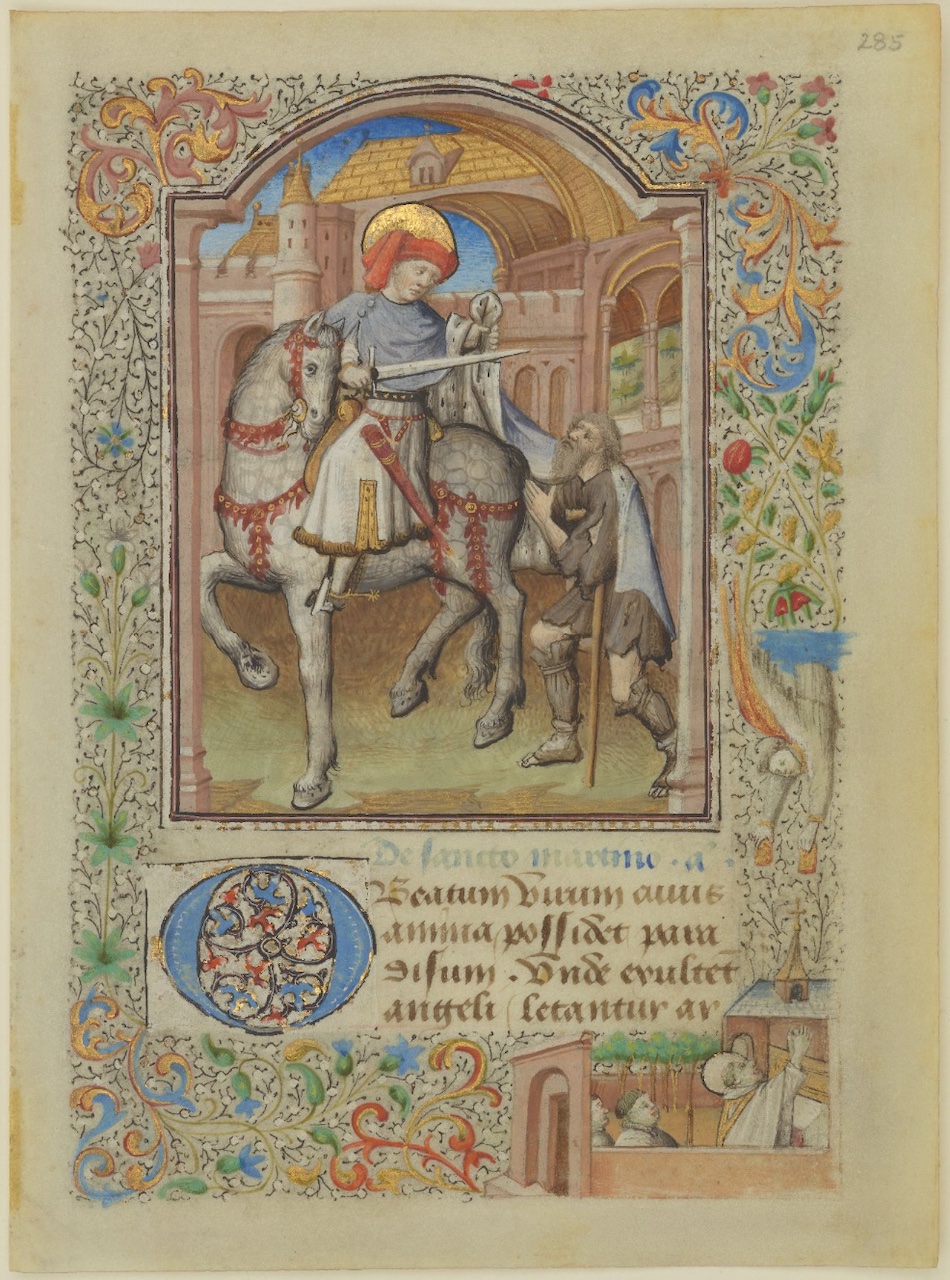 285
De sancto martino . aͣ .
O Beatum virum cuius
anima possidet para
disum . Vnde exultet
angeli letantur ar